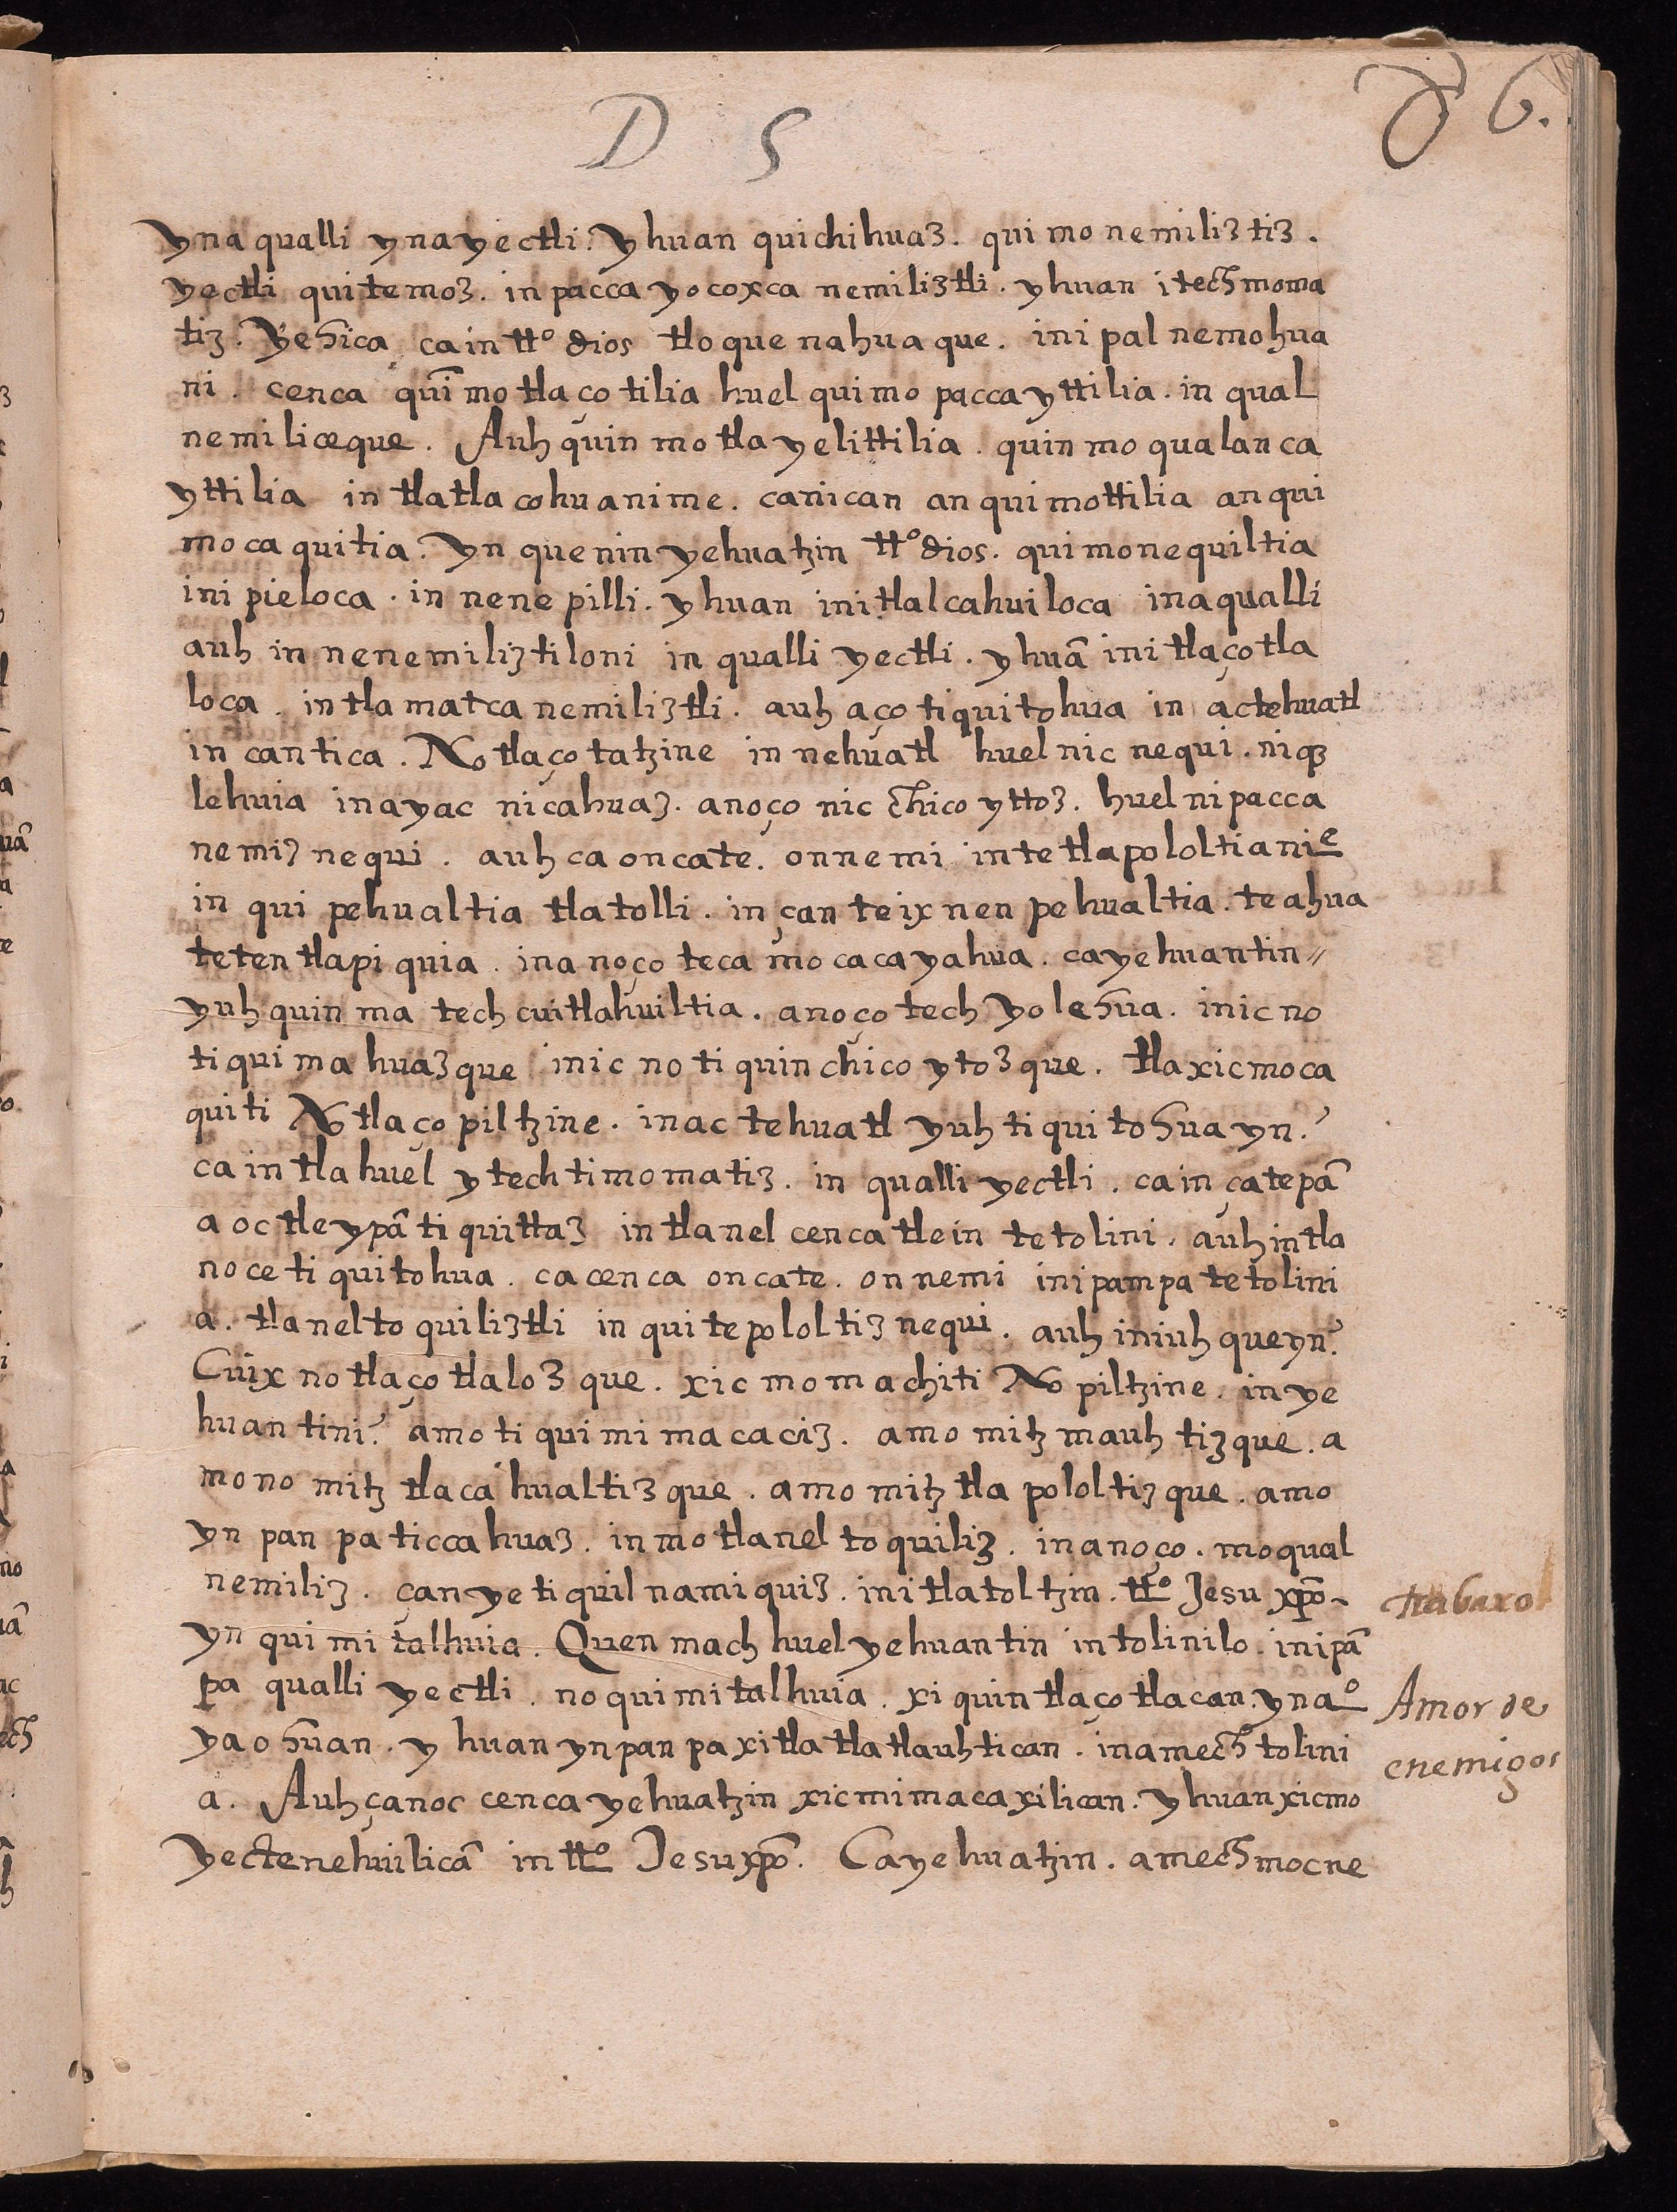 D S
6.
yna qualli yna yectli. yhuan quichihuaz. quimonemiliztiz.
yectli quitemoz. in pacca yocoxca nemiliztli. yhuan itech moma
tiz. Yehica ca in tto dios tloque nahuaque. inipalnemohua
ni. cenca quĩmotlaçotilia huel quimo paccayttilia. in qual
nemiliceque. Auh quin motlayelittilia. quin moqualanca
yttilia in tlatlacohuanime. canican anquimottilia anqui
mocaquitia. Yn quenin yehuatzin tto dios. quimonequiltia
ini pieloca. in nenepilli. yhuan initlalcahuiloca inaqualli
auh in nenemiliztiloni in qualli yectli. yhuã initlaçotla
loca. in tlamatca nemiliztli. auh aço tiquitohua in actehuatl
in cantica. Notlaçotatzine in nehuatl huel nic nequi. niq̃
lehuia in ayac nicahuaz. anoço nic chicoyttoz. huel nipacca
nemiz nequi. auh ca oncate. onnemi in tetlapololtianie
in qui pehualtia tlatolli. in çan teixnenpehualtia. teahua
tetentlapiquia. inanoço teca mocacayahua. cayehuantin
yuhquin ma techcuitlahuiltia. anoço techyolehua. inic no
tiquimahuazque inic no tiquinchicoytozque. tlaxicmoca
quiti Notlaçopiltzine. inac tehuatl yuh tiquitohua yn?
ca intlahuel ytech timomatiz. in qualli yectli. ca in çatepã
aoctle ypã tiquittaz intlanel cenca tlein tetolini. auh intla
noce tiquitohua. ca cenca oncate. onnemi inipampa tetolini
a. tlaneltoquiliztli in quitepololtiz nequi. auh iniuhqueyn?
Cuix no tlaçotlalozque. xicmomachiti Nopiltzine. in ye
huantini? amo tiquimimacaciz. amo mitzmauhtizque. a
mono mitztlacahualtizque. amo mitztlapololtizque. amo
ynpanpa ticcahuaz. in motlaneltoquiliz. inanoço. moqual
nemiliz. çan ye tiquilnamiquiz. initlatoltzin. tto Jesu xp̃o
yn quimitalhuia. Quenmach huel yehuantin in tolinilo. inipã
pa qualli yectli. no quimitalhuia. xiquintlaçotlacan. ynamo
yaohuan. yhuan ynpanpa xitlatlatlauhtican. inamechtolini
a. Auh çanoc cenca yehuatzin xicmimacaxilican. yhuan xicmo
yectenehuilicã in tto Jesu xp̃o. Cayehuatzin. amechmocne
trabaxo
Amor de
enemigos